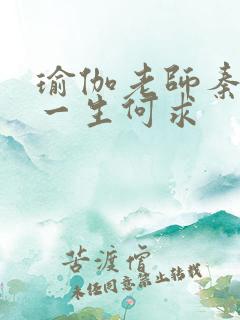 瑜伽老師秦
一生何求
苦渡僧
未经同意禁止转载